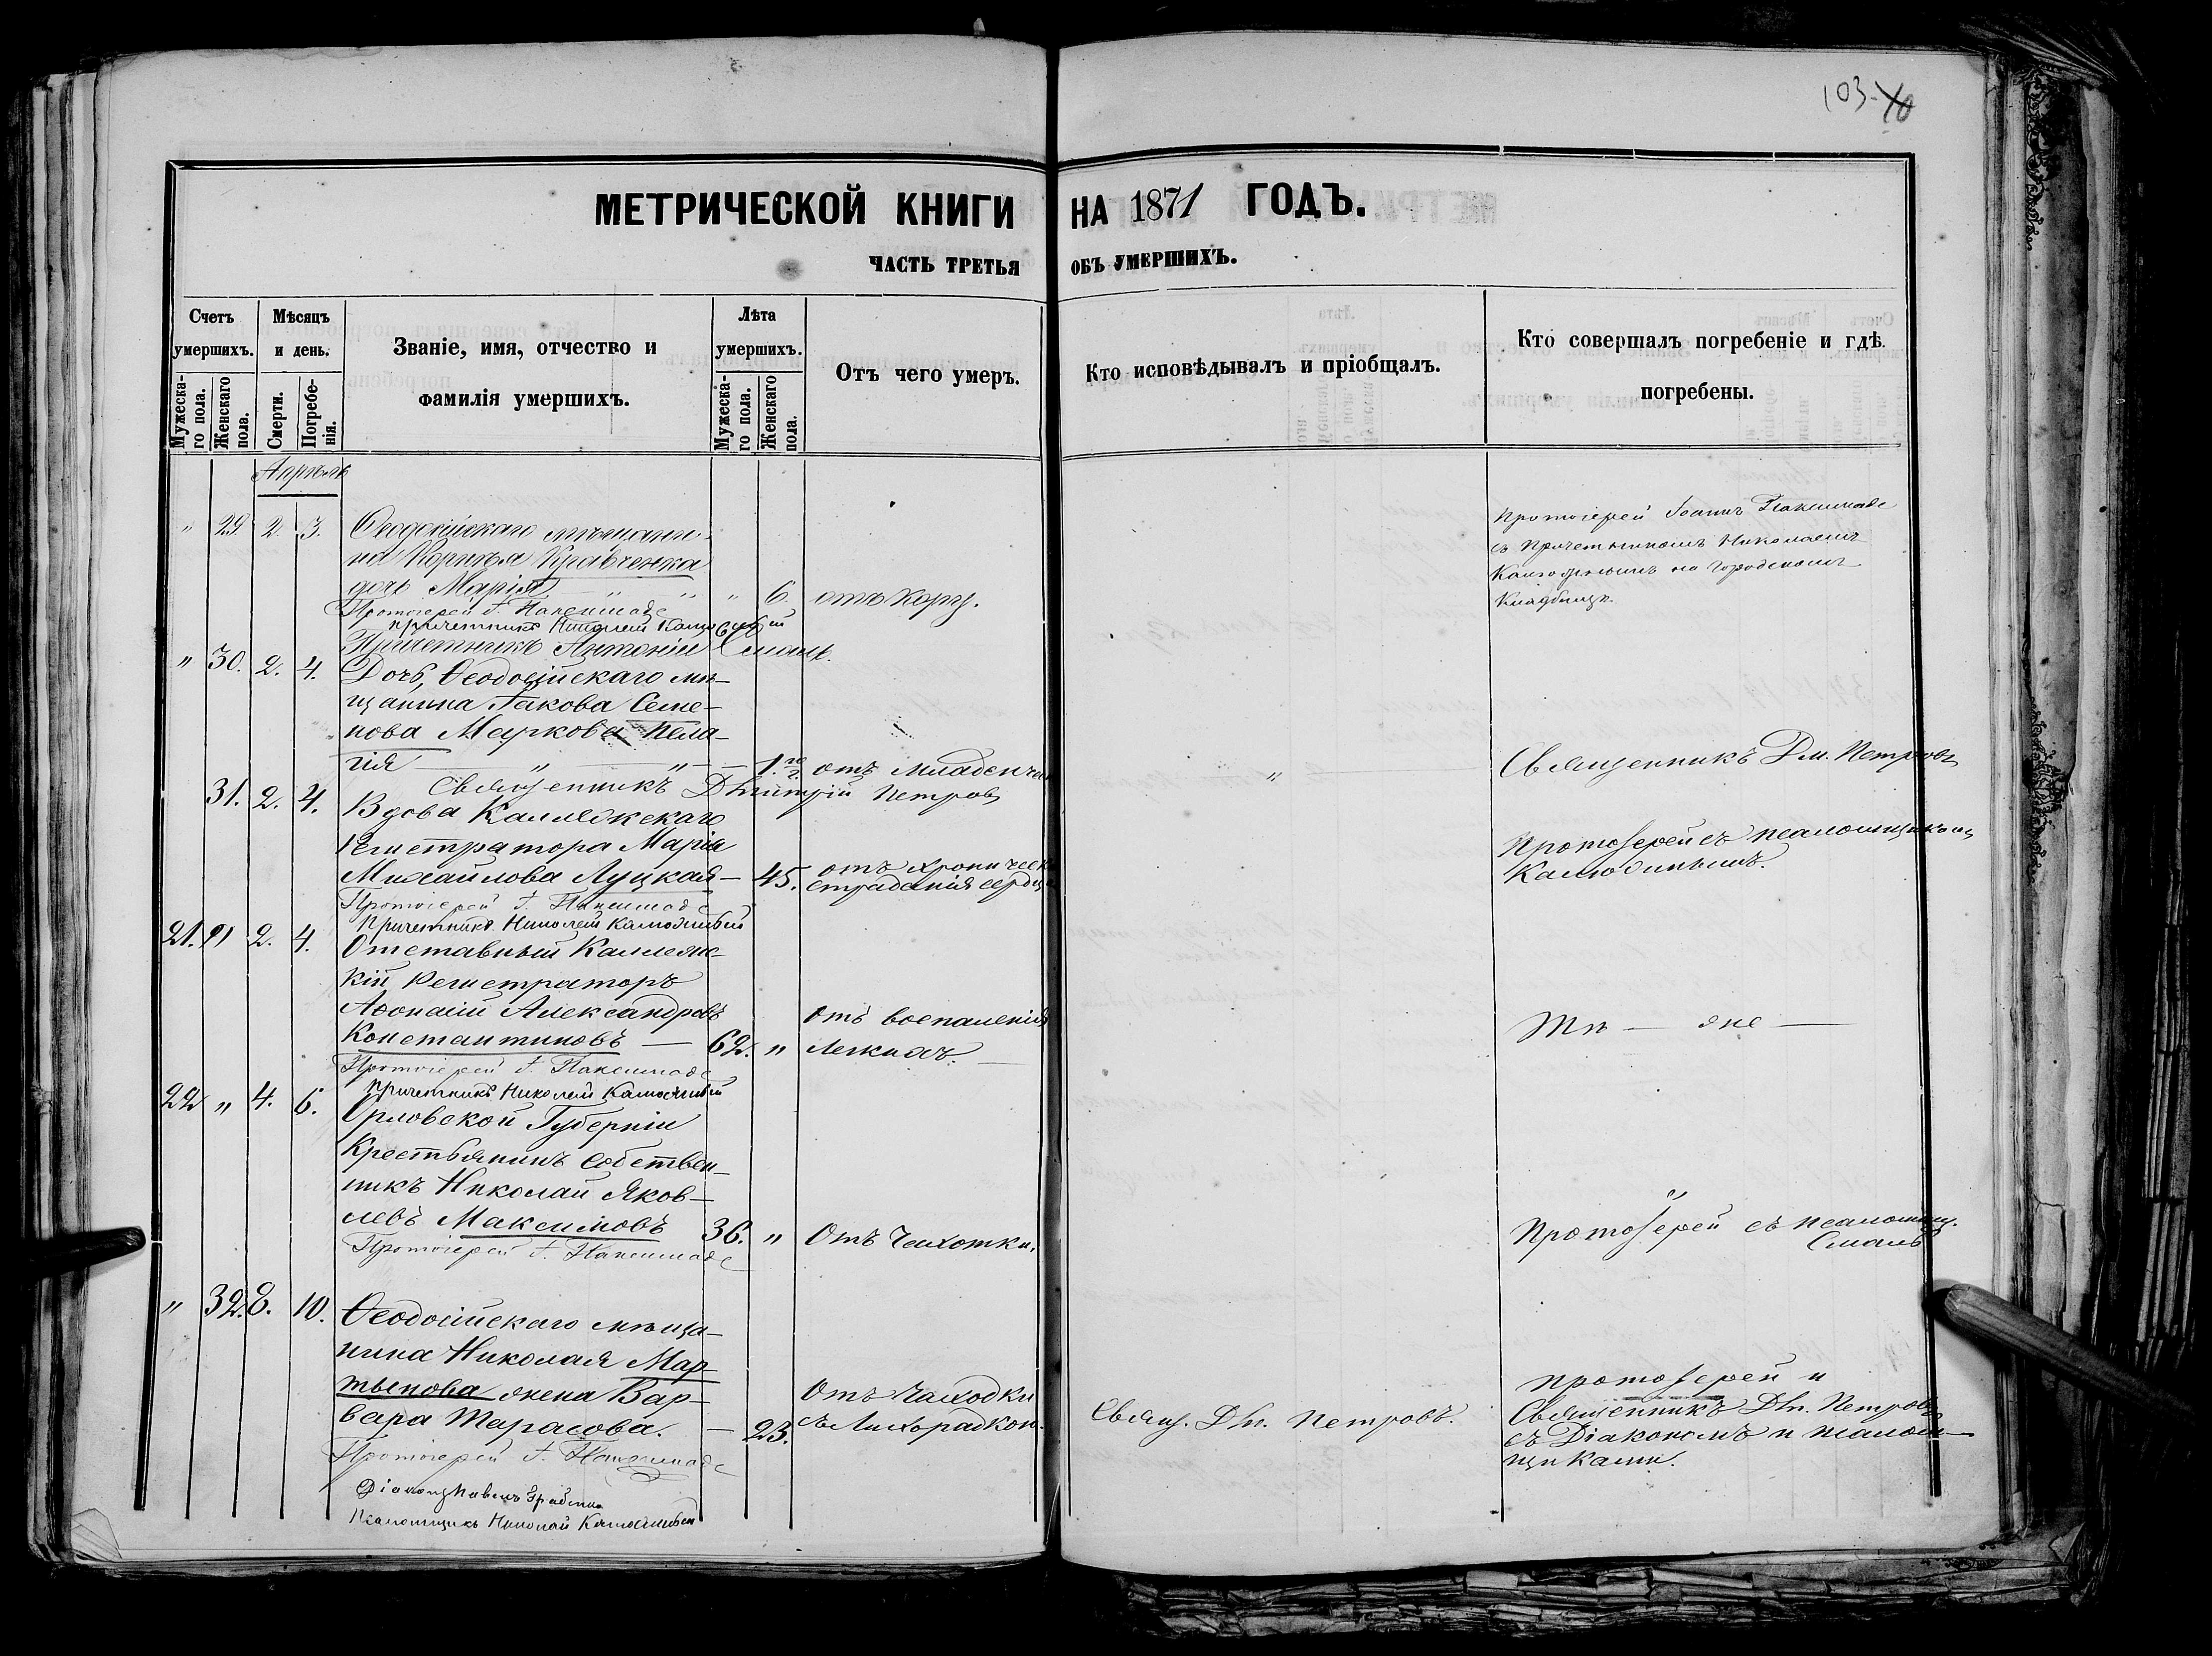 103
МЕТРИЧЕСКОЙ КНИГИ НА 1871 ГОДЪ.
ЧАСТЬ ТРЕТЬЯ ОБЪ УМЕРШИХЪ.
Счетъ умершихъ.
Мужеска-го пола.
Женскаго пола.
Мѣсяцъ и день.
Смерти.
Погребе-нія.
Званіе, имя, отчество и
фамилія умершихъ.
Лѣта умершихъ.
Мужеска-го пола.
Женскаго пола.
Отъ чего умеръ.
Кто исповѣдывалъ и пріобщалъ.
Кто совершалъ погребеніе и гдѣ
погребены.
Апрѣль
" 29 2. 3. Ѳеодосійскаго мѣщани-
на Корнѣя Кравченка
дочь Марія " " " 6. отъ кору.
Протоіерей Іоаннъ
съ Причетникомъ Николаемъ
на городскомъ
Кладбищѣ.
Протоіерей І.
причетникъ Николай
Причетникъ Антоній
" 30. 2. 4. Дочь, Ѳеодосійскаго мѣ-
щанина Іакова Семе-
нова Маркова Пела-
гія " " 1. отъ младенчес
" Священникъ Дм. Петровъ
Священникъ Дмитрій Петровъ
31. 2. 4. Вдова Каллежскаго
Регистратора Марія
Михайлова Луцкая — 45. отъ хроническ
страданія сердца
Протоіерей съ псаломщикомъ
Протоіерей І.
Причетникъ Николай
21. " 2. 4. Отставный Коллежс
кій Регистраторъ
Аѳонасій Александровъ
Константиновъ — 62. " Отъ воспаленія
Легкихъ.
Тѣ — же —
Протоіерей І.
причетникъ Николай
22 " 4. 6. Орловской Губерніи
Крестьянинъ Собствен-
никъ Николай Яков-
левъ Максимовъ 36. " Отъ Чахотки.
"
Протоіерей съ псаломщ.
Протоіерей І.
" 32. 8. 10. Ѳеодосійскаго мѣща-
нина Николая Мар
тынова жена Вар-
вара Тарасова. — 23. Отъ Чаходки
съ Лихорадкою.
Свящ. Дм. Петровъ.
Протоіерей и
Священникъ Дм. Петровъ
съ Діакономъ и псалом-
щиками.
Протоіерей І.
Діаконъ Павелъ
Псаломщикъ Николай